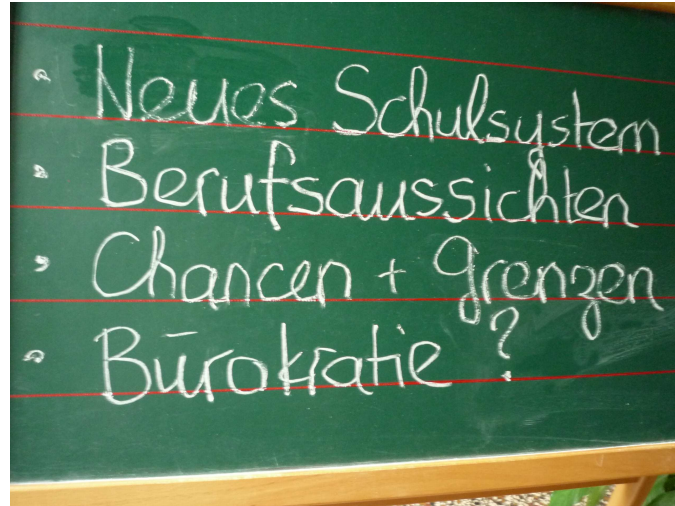 • Neues Schulsystem
• Berufsaussichten
• Chancen + Grenzen
• Bürokratie ?